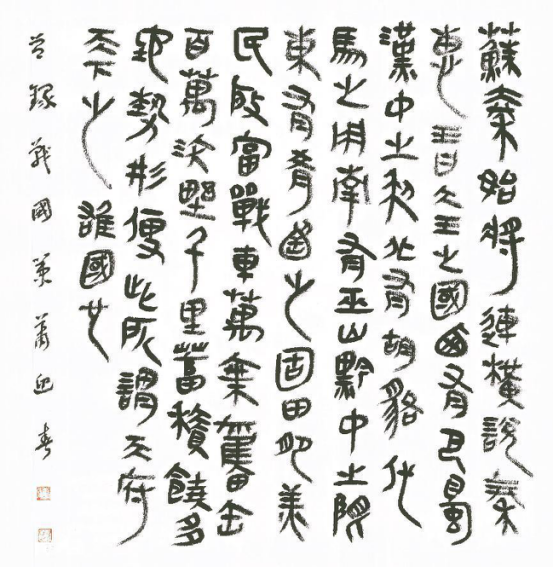 蘇秦始將連橫說秦
惠王曰大王之國西有巴蜀
漢中之利北有胡貉代
馬之用南有巫山黔中之限
東有肴函之固田肥美
民殷富戰車萬乘奮擊
百萬沃野千里蓄積饒多
地勢形便此所謂天府
天下之雄國也
錄戰國策蕭迎春